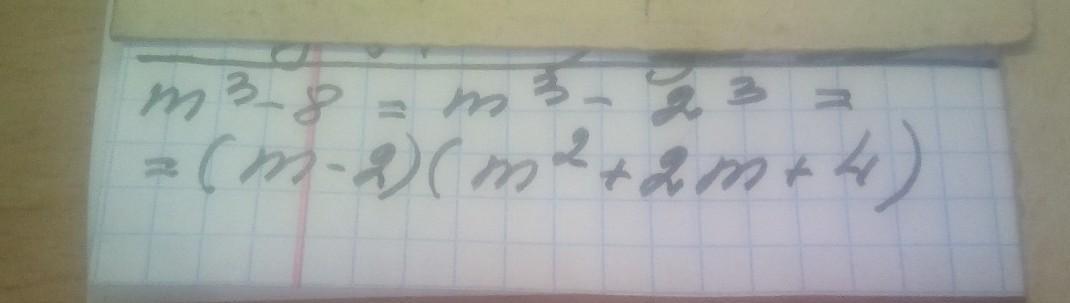 m³ - 8 = m³ - 2³ =
= (m - 2)(m² + 2m + 4)